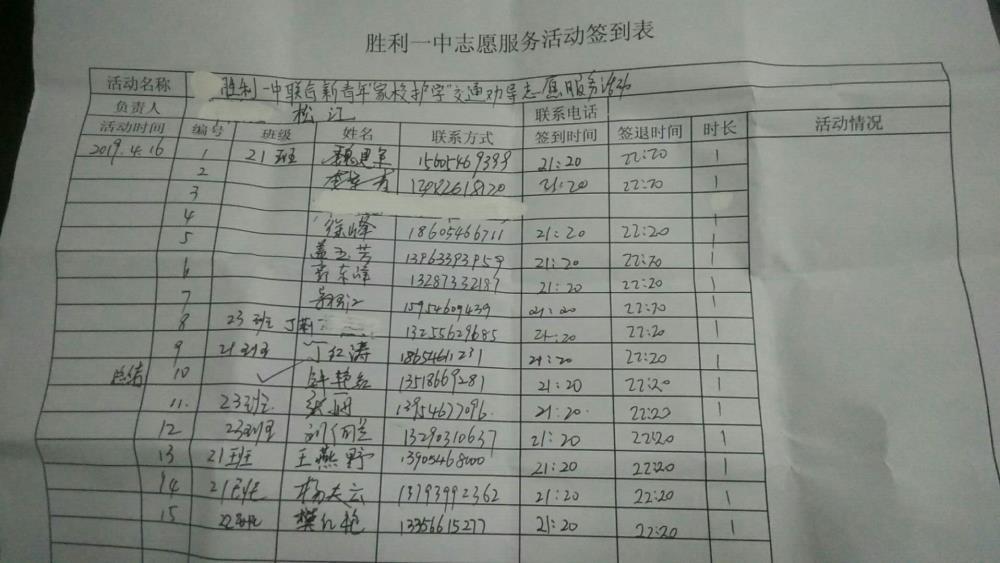 胜利一中志愿服务活动签到表
活动名称 胜利一中联合新青年"家校护学"交通劝导志愿服务活动
负责人 松江 联系电话
活动时间 编号 班级 姓名 联系方式 签到时间 签退时间 时长 活动情况
2019.4.16 1 21班 魏建军 15605469399 21:20 22:20 1
2 21:20 22:20 1
3
4 徐峰 18605466711 21:20 22:20 1
5 盖玉芳 13963393959 21:20 22:20 1
6 东峰 13287332187 21:20 22:20 1
7 15954609439 21:20 22:20 1
8 23班 丁 13255629685 21:20 22:20 1
9 21班 丁红涛 18654611231 21:20 22:20 1
总结 10 13518669281 21:20 22:20 1
11 23班 张丽 13954677096 21:20 22:20 1
12 23班 刘 13290310637 21:20 22:20 1
13 21班 王燕野 13905468000 21:20 22:20 1
14 21班 杨夫云 13793992362 21:20 22:20 1
15 22班 樊红艳 13356615277 21:20 22:20 1